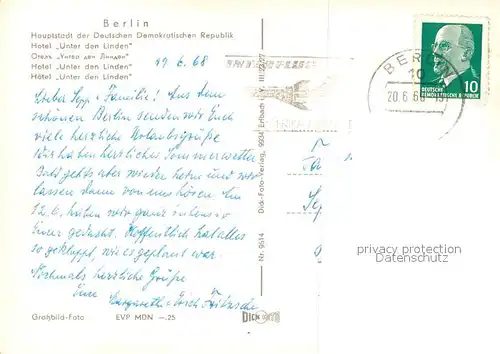 Berlin
Hauptstadt der Deutschen Demokratischen Republik
Hotel „Unter den Linden"
Отель „Унтер ден Линден"
Hotel „Unter den Linden"
Hôtel „Unter den Linden"
19.6.68
Lieber Sepp u. Familie! Aus dem
schönen Berlin senden wir Euch
viele herzliche Urlaubsgrüße
Wir haben herrliches Sommerwetter
Bald geht's aber wieder heim und wir
lassen dann von uns hören. Am
12.6. haben wir ganz intensiv
Euer gedacht. Hoffentlich hat alles
so geklappt, wie es geplant war.
Nochmals herzliche Grüße
Eure Margarethe
Großbild-Foto EVP MDN —.25
Dick-Foto-Verlag, 9934 Erlbach i. V.
Nr. 9514
DICK FOTO
BERLIN
10
20.6.68
DEUTSCHE
DEMOKRATISCHE REPUBLIK
10
privacy protection
Datenschutz